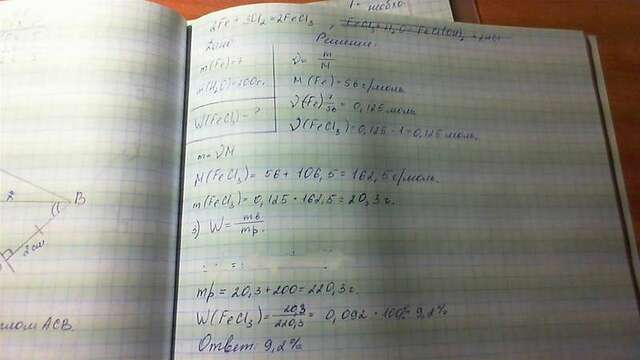 2Fe + 3Cl₂ = 2FeCl₃
Дано
Решение.
m(Fe) = 7
m(H₂O) = 200г.
W(FeCl₃) - ?
ν = m/M
M(Fe) = 56 г/моль
ν(Fe) 7/56 = 0,125 моль
ν(FeCl₃) = 0,125 · 1 = 0,125 моль.
m = νM
M(FeCl₃) = 56 + 106,5 = 162,5 г/моль.
m(FeCl₃) = 0,125 · 162,5 = 20,3 г.
3) W = mв/mр.
mр = 20,3 + 200 = 220,3 г.
W(FeCl₃) = 20,3/220,3 = 0,092 · 100% = 9,2%
Ответ: 9,2%
B
2 см
АСВ.